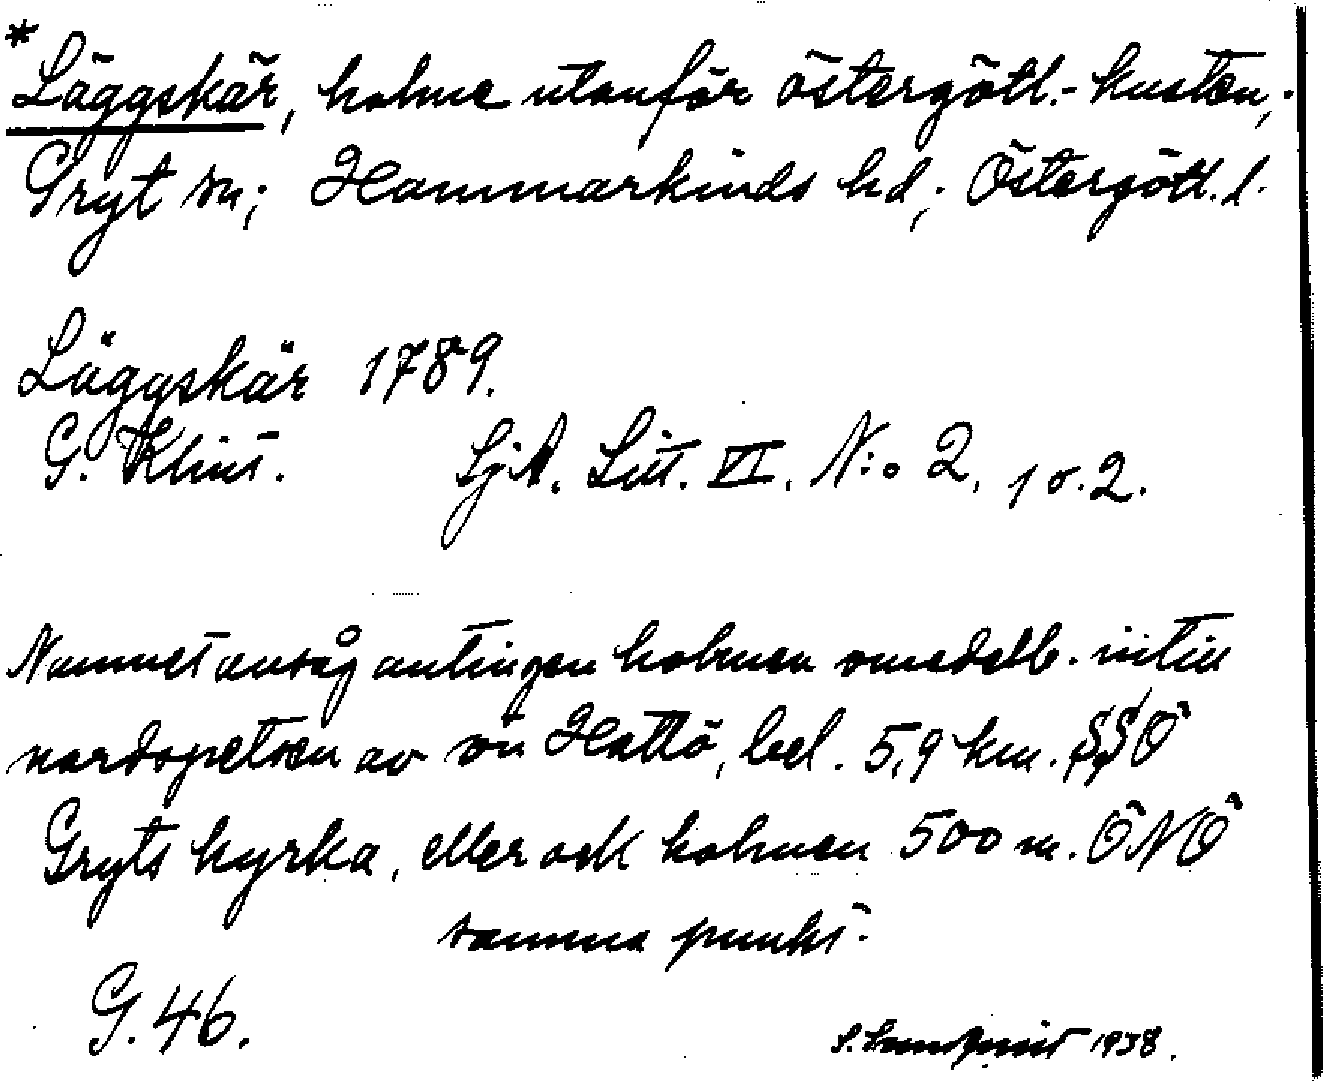 *Läggskär, holme utanför östergötl.-kusten,
Gryt sn; Hammarkinds hd; Östergötl. l.
Läggskär 1789.
G. Klint. SjA. Litt. VI. N:o 2, 1 o. 2.
Namnet avsåg antingen holmen omedelb. intill
nordspetsen av ön Hättö, bel. 5,9 km. SSÖ
Gryts kyrka, eller ock holmen 500 m. ÖNÖ
samma punkt.
G. 46.
S. 1938.